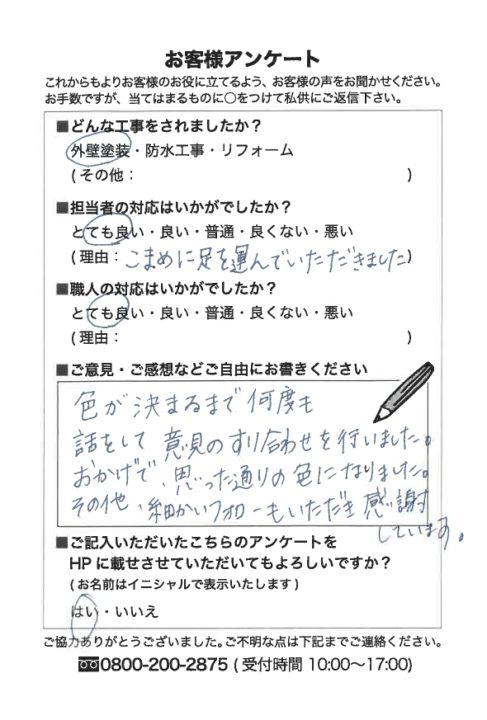 お客様アンケート
これからもよりお客様のお役に立てるよう、お客様の声をお聞かせください。
お手数ですが、当てはまるものに○をつけて私供にご返信下さい。
■どんな工事をされましたか？
外壁塗装・防水工事・リフォーム
(その他： )
■担当者の対応はいかがでしたか？
とても良い・良い・普通・良くない・悪い
(理由：こまめに足を運んでいただきました)
■職人の対応はいかがでしたか？
とても良い・良い・普通・良くない・悪い
(理由： )
■ご意見・ご感想などご自由にお書きください
色が決まるまで何度も
話をして意見のすり合わせを行いました。
おかげで、思った通りの色になりました。
その他、細かいフォローもいただき感謝
しています。
■ご記入いただいたこちらのアンケートを
HPに載せさせていただいてもよろしいですか？
(お名前はイニシャルで表示いたします)
はい・いいえ
ご協力ありがとうございました。ご不明な点は下記までご連絡ください。
0800-200-2875 (受付時間 10:00〜17:00)